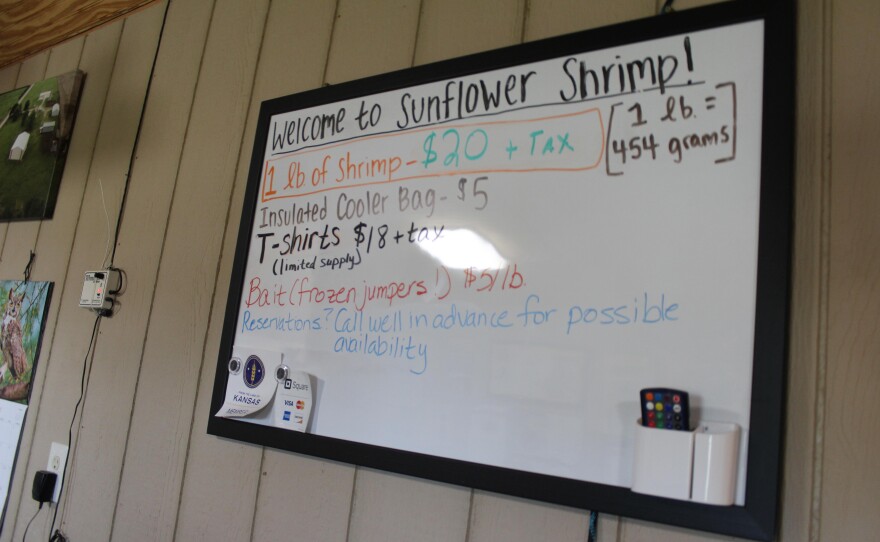 Welcome to Sunflower Shrimp!
1 lb. of Shrimp - $20 + TAX
[1 lb. =
454 grams]
Insulated Cooler Bag - $5
T-shirts $18 + tax
(limited supply)
Bait (frozen jumpers!) $5/lb.
Reservations? Call well in advance for possible
availability
KANSAS
Square
VISA